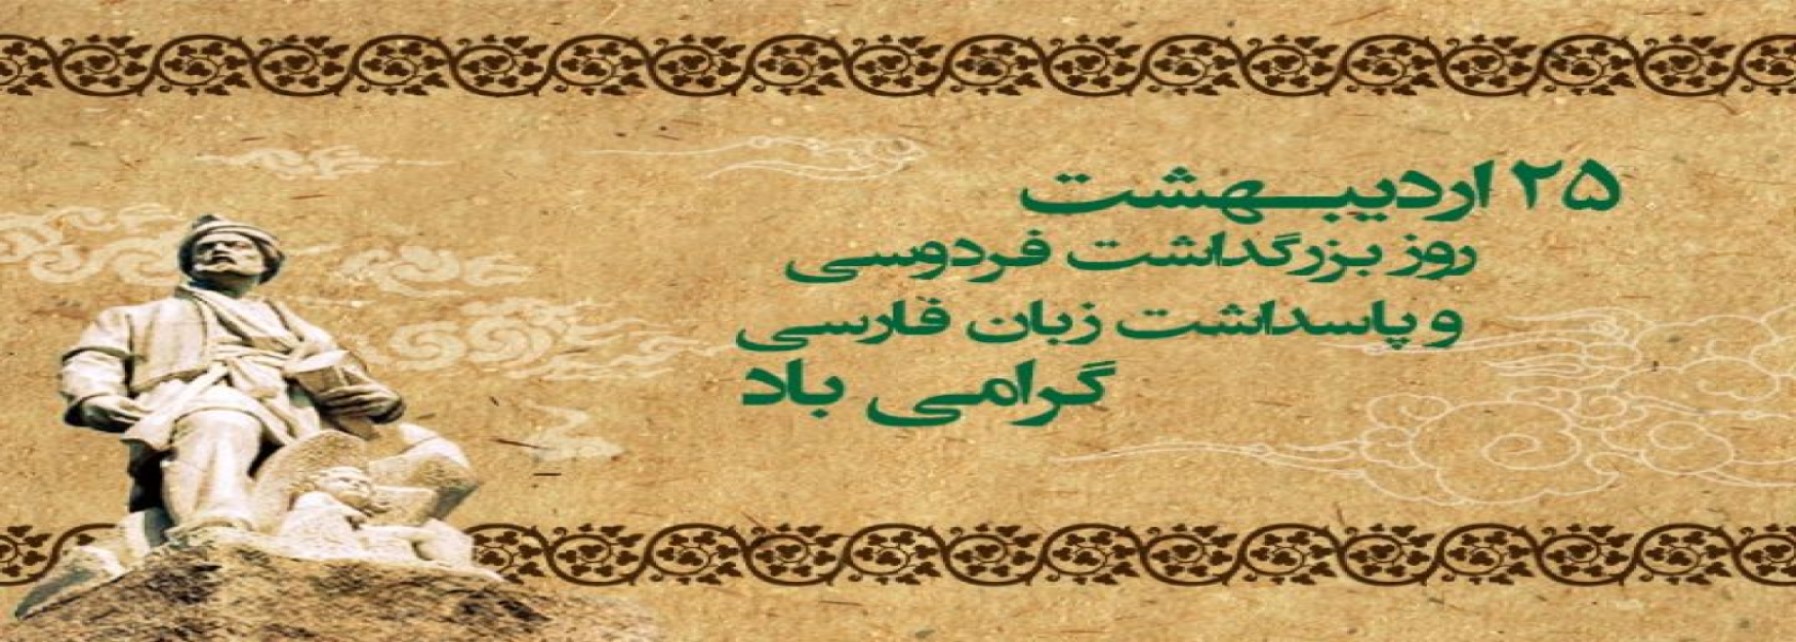 ۲۵ اردیبهشت
روز بزرگداشت فردوسی
و پاسداشت زبان فارسی
گرامی باد